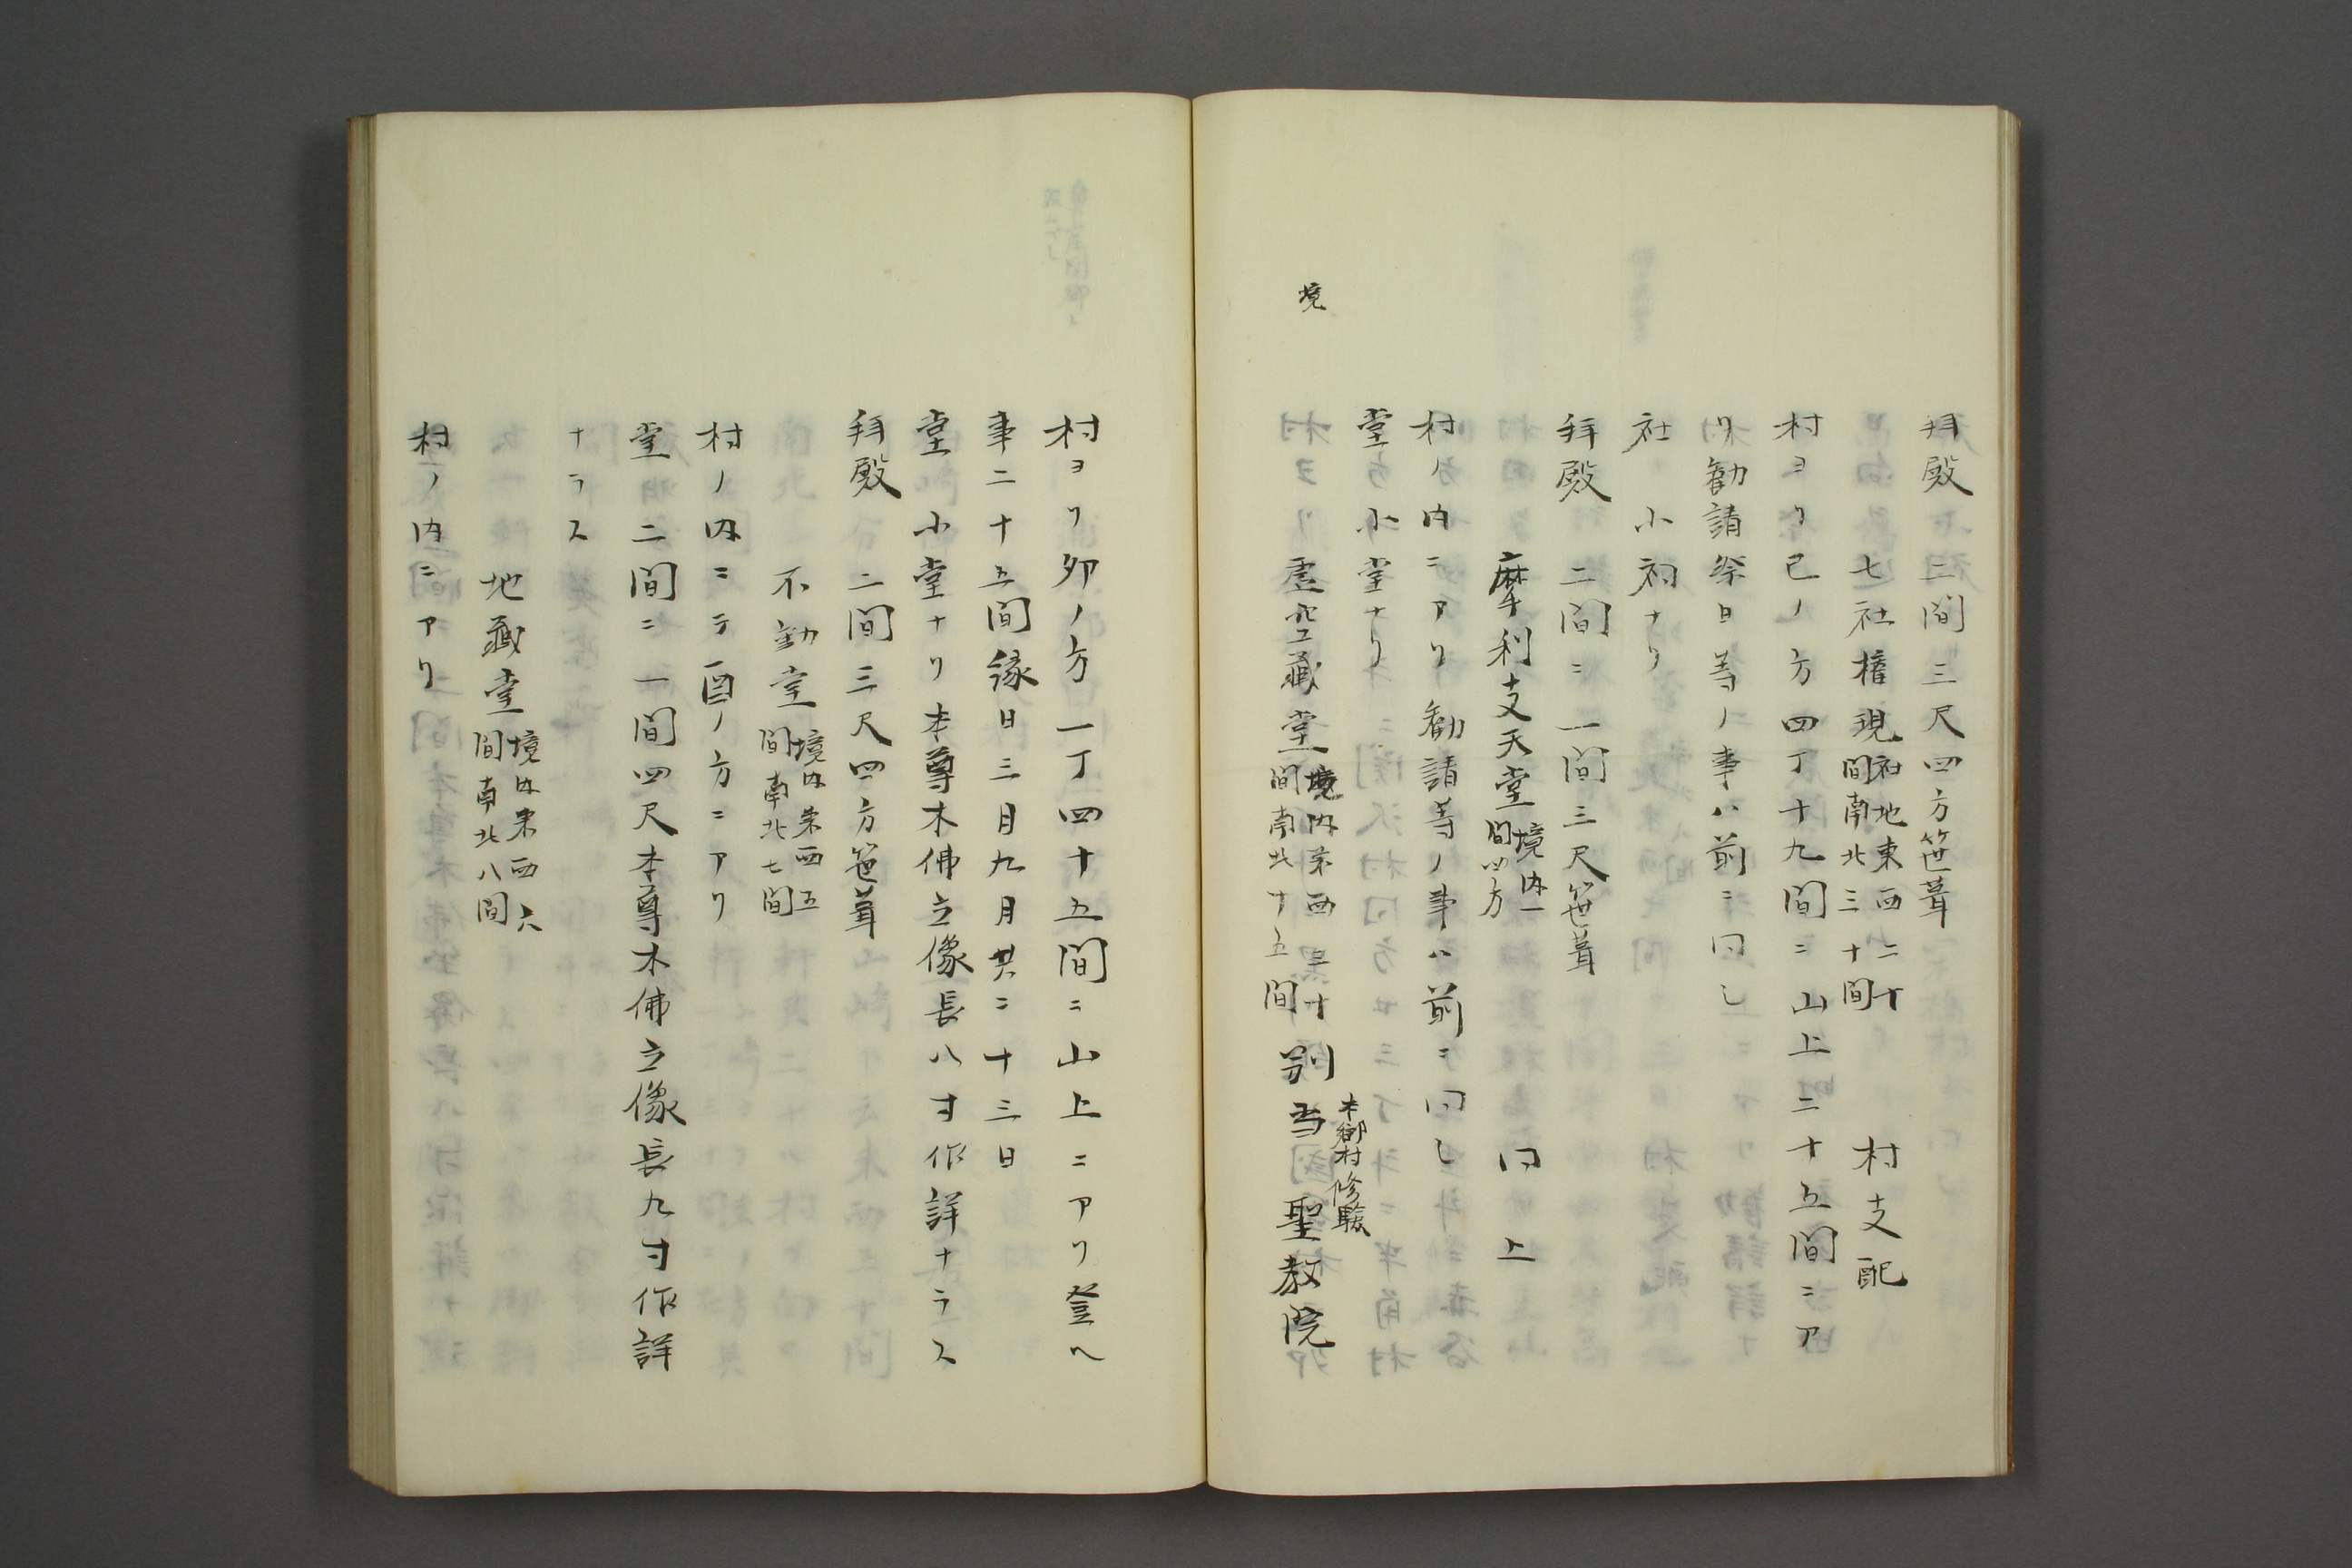 拜殿 二間三尺四方笹葺
七社権現 社地東西二十間南北三十間 村支配
村ヨリ巳ノ方四丁十九間ニ山上二十五間ニア
リ勧請祭日等ノ事ハ前ニ同シ
社 小祠ナリ
拜殿 二間ニ一間三尺笹葺
摩利支天堂 境内一間四方 同上
村ノ内ニアリ勧請等ノ事ハ前ニ同シ
堂 小堂ナリ
境
虚空藏堂 境内東西三十間南北十五間 別当 本郷村修験 聖教院
村ヨリ卯ノ方一丁四十五間ニ山上ニアリ登ヘ
事二十五間縁日三月九月共ニ十三日
堂 小堂ナリ本尊木佛立像長八寸作詳ナラス
拜殿 二間三尺四方笹葺
不動堂 境内東西五間南北七間
村ノ内ニテ酉ノ方ニアリ
堂 二間ニ一間四尺本尊木佛立像長九寸作詳
ナラス
地藏堂 境内東西六間南北八間
村ノ内ニアリ